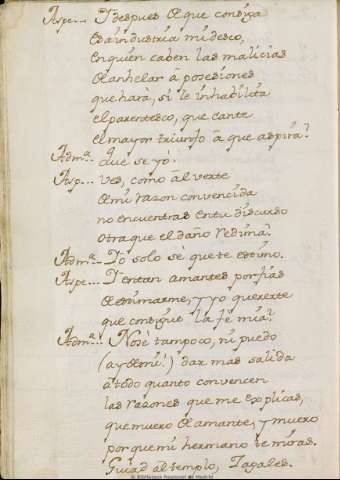 Aspe... Y despues de que consiga
esa industria mi deseo,
en quien caben las malicias
de anhelar â posesiones
que harà, si le inhabilita
el parentesco, que cante
el mayor triunfo â que aspira?
Adm.ª Que se yó!
Asp... Ves, como âl verte
de mi razon convencida
no encuentras en tu discurso
otra que el daño redima?
Adm.ª... Yò solo sè que te estimo.
Aspe... Y en tan amantes porfias
de estimarme, y yo quererte
que consigue la fè mia?
Adm.ª... No sè tampoco, ni puedo
(ay de mi!) dar mas salida
â todo quanto convencen
las razones que me explicas,
que muero de amante, y muero
porque mi hermano te miras.
Guiad âl templo, Zagales.
Biblioteca Nacional de España